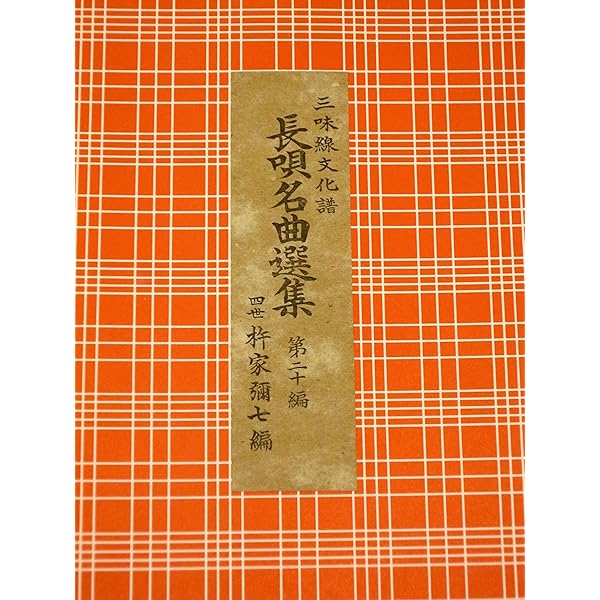 三味線文化譜
長唄名曲選集
第二十編
四世 杵家彌七編